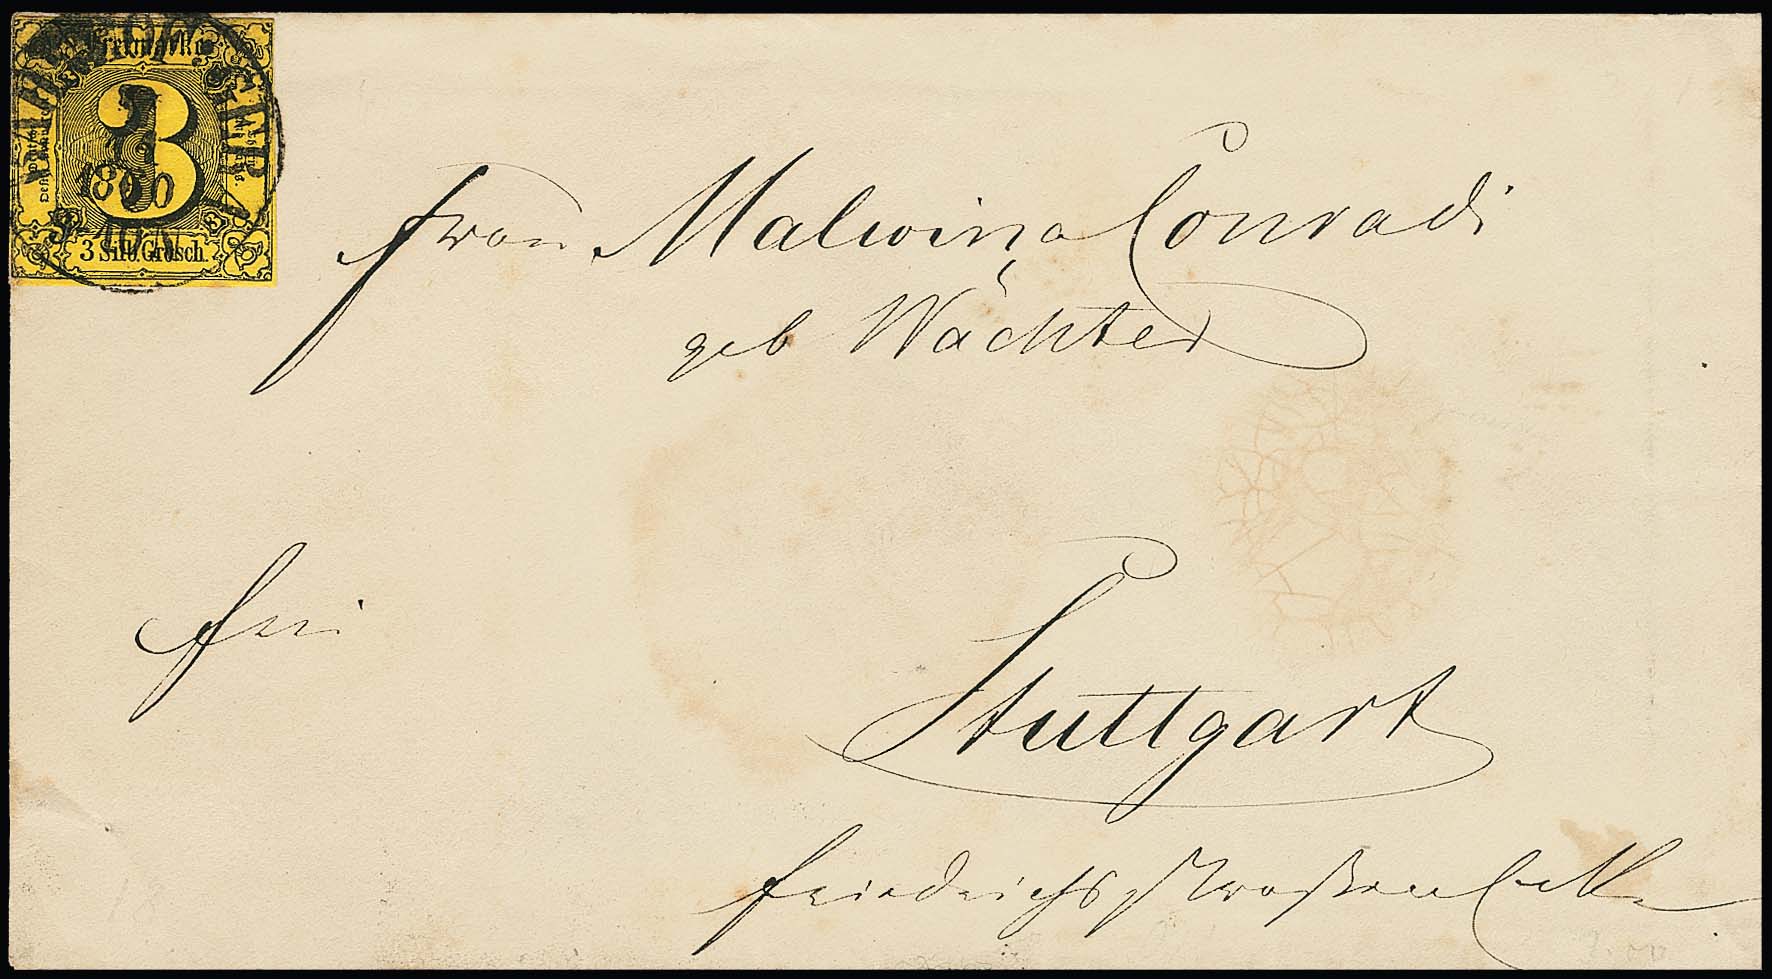 Freimarke
3
3 Silb. Grosch.
1860
Frau Malwina Conradi
geb Wächter
frei
Stuttgart
Friedrichsstraßen Ecke